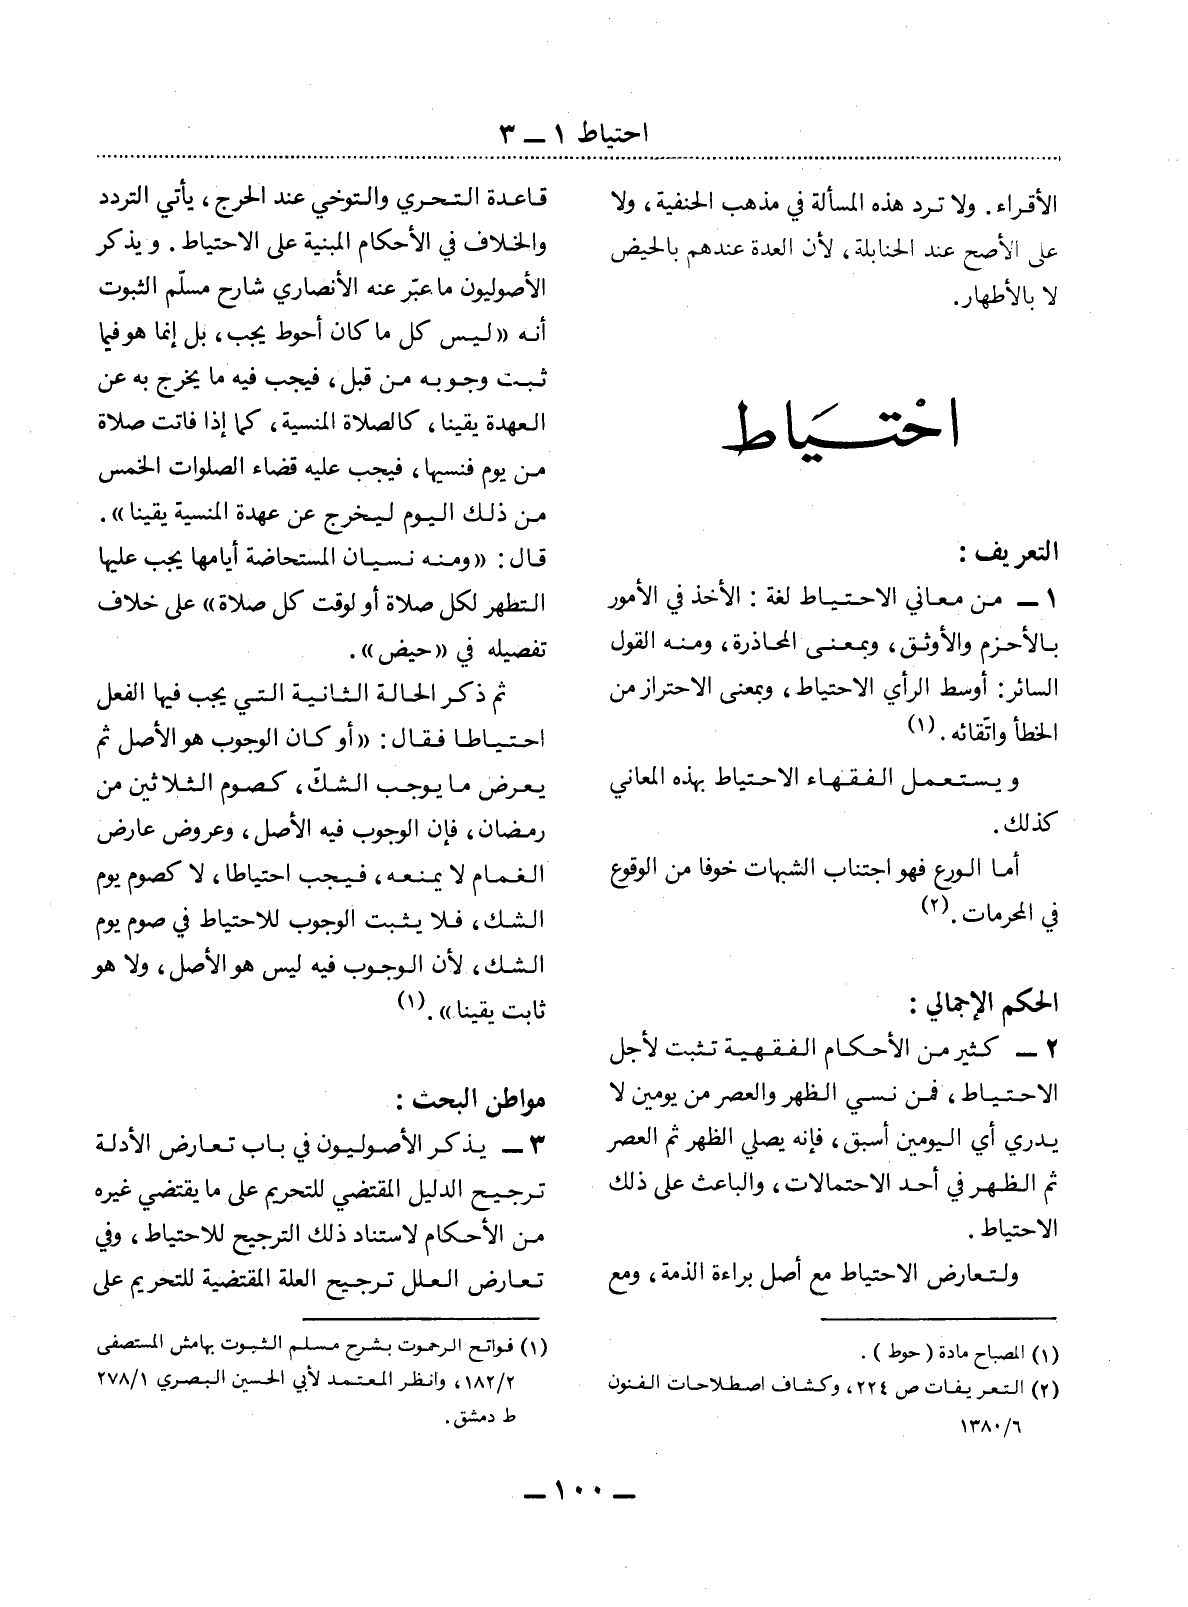 احتياط ١ ـ ٣
الأقراء. ولا ترد هذه المسألة في مذهب الحنفية، ولا
على الأصح عند الحنابلة، لأن العدة عندهم بالحيض
لا بالأطهار.
احْتـيَاط
التعريف :
١ ـ من معاني الاحتياط لغة : الأخذ في الأمور
بالأحزم والأوثق، وبمعنى المحاذرة، ومنه القول
السائر: أوسط الرأي الاحتياط، وبمعنى الاحتراز من
الخطأ واتّقائه. (١)
ويستعمل الفقهاء الاحتياط بهذه المعاني
كذلك.
أما الورع فهو اجتناب الشبهات خوفا من الوقوع
في المحرمات. (٢)
الحكم الإجمالي :
٢ ـ كثير من الأحكام الفقهية تثبت لأجل
الاحتياط، فمن نسي الظهر والعصر من يومين لا
يدري أي اليومين أسبق، فإنه يصلي الظهر ثم العصر
ثم الظهر في أحد الاحتمالات، والباعث على ذلك
الاحتياط.
ولتعارض الاحتياط مع أصل براءة الذمة، ومع
(١) المصباح مادة ( حوط ) .
(٢) التعريفات ص ٢٢٤، وكشاف اصطلاحات الفنون
٦/ ١٣٨٠
قاعدة التحري والتوخي عند الحرج، يأتي التردد
والخلاف في الأحكام المبنية على الاحتياط. ويذكر
الأصوليون ما عبّر عنه الأنصاري شارح مسلّم الثبوت
أنه «ليس كل ما كان أحوط يجب، بل إنما هو فيما
ثبت وجوبه من قبل، فيجب فيه ما يخرج به عن
العهدة يقينا، كالصلاة المنسية، كما إذا فاتت صلاة
من يوم فنسيها، فيجب عليه قضاء الصلوات الخمس
من ذلك اليوم ليخرج عن عهدة المنسية يقينا».
قال: «ومنه نسيان المستحاضة أيامها يجب عليها
التطهر لكل صلاة أو لوقت كل صلاة» على خلاف
تفصيله في «حيض».
ثم ذكر الحالة الثانية التي يجب فيها الفعل
احتياطا فقال: «أو كان الوجوب هو الأصل ثم
يعرض ما يوجب الشكّ، كصوم الثلاثين من
رمضان، فإن الوجوب فيه الأصل، وعروض عارض
الغمام لا يمنعه، فيجب احتياطا، لا كصوم يوم
الشك، فلا يثبت الوجوب للاحتياط في صوم يوم
الشك، لأن الوجوب فيه ليس هو الأصل، ولا هو
ثابت يقينا». (١)
مواطن البحث :
٣ ـ يذكر الأصوليون في باب تعارض الأدلة
ترجيح الدليل المقتضي للتحريم على ما يقتضي غيره
من الأحكام لاستناد ذلك الترجيح للاحتياط، وفي
تعارض العلل ترجيح العلة المقتضية للتحريم على
(١) فواتح الرحموت بشرح مسلم الثبوت بهامش المستصفى
٢/ ١٨٢، وانظر المعتمد لأبي الحسين البصري ١/ ٢٧٨
ط دمشق.
ـ ١٠٠ ـ